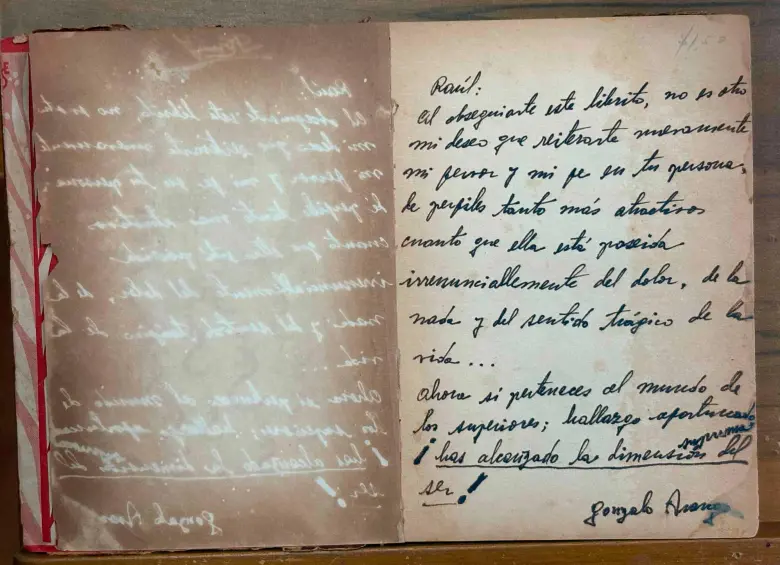 71.50
Raúl:
Al obsequiarte este librito, no es otro
mi deseo que reiterarte nuevamente
mi fervor y mi fe en tu persona,
de perfiles tanto más atractivos
cuanto que ella está poseída
irrenunciablemente del dolor, de la
nada y del sentido trágico de la
vida...
Ahora si perteneces al mundo de
los superiores; hallazgo afortunado
suprema
¡has alcanzado la dimensión del
ser!
Gonzalo Arango